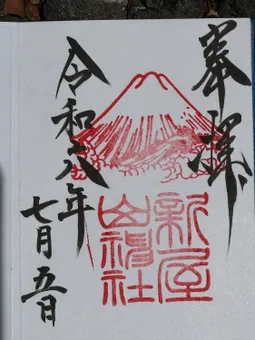 奉拝
新屋
山神社
令和六年
七月五日